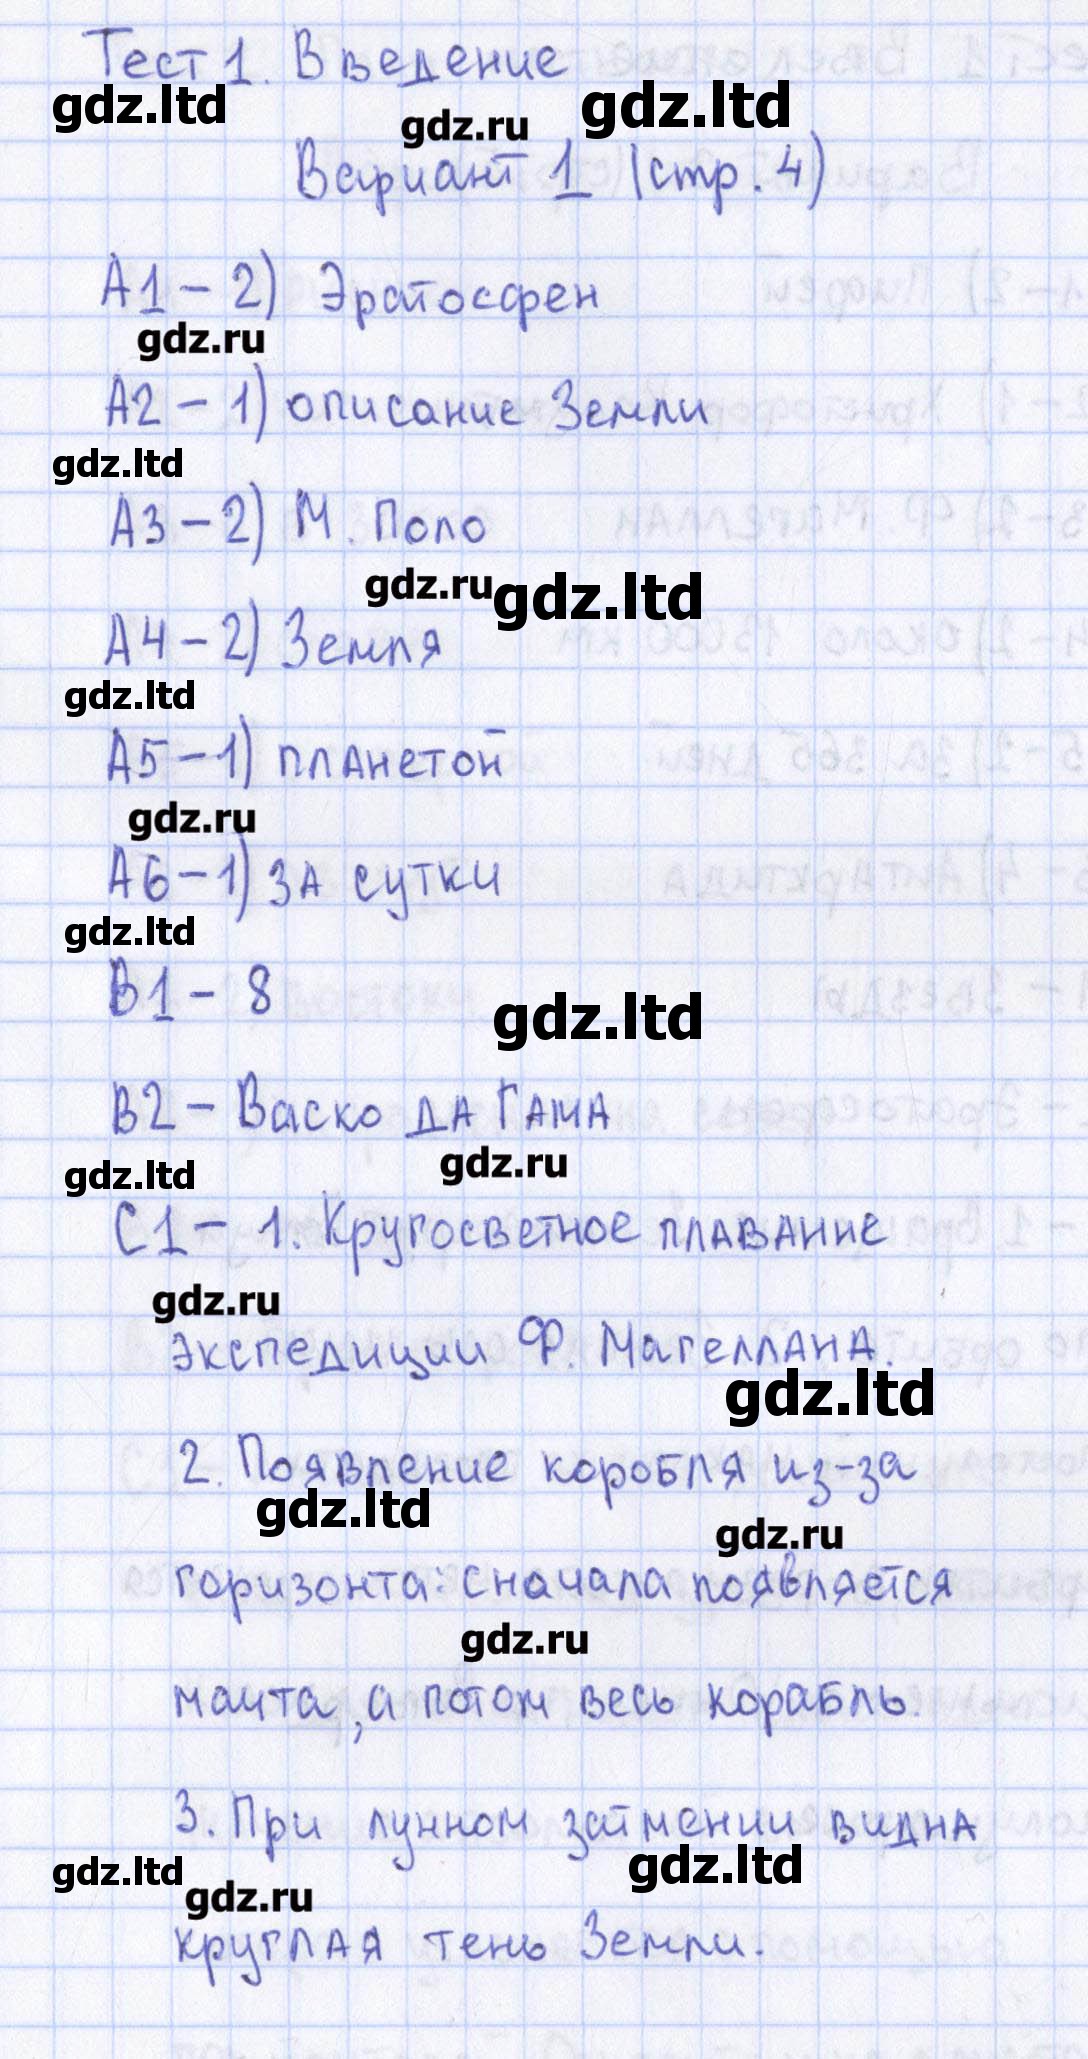 Тест 1. Введение
gdz.ltd gdz.ru gdz.ltd
Вариант 1 (стр. 4)
А1 – 2) Эратосфен
gdz.ru
А2 – 1) описание Земли
gdz.ltd
А3 – 2) М. Поло
gdz.ru gdz.ltd
А4 – 2) Земля
gdz.ltd
А5 – 1) планетой
gdz.ru
А6 – 1) за сутки
gdz.ltd
В1 – 8
gdz.ltd
В2 – Васко да Гама
gdz.ltd gdz.ru
С1 – 1. Кругосветное плавание
gdz.ru
экспедиции Ф. Магеллана.
gdz.ltd
2. Появление коробля из-за
gdz.ltd gdz.ru
горизонта: сначала появляется
gdz.ru
мачта, а потом весь корабль.
3. При лунном затмении видна
gdz.ltd gdz.ru gdz.ltd
круглая тень Земли.